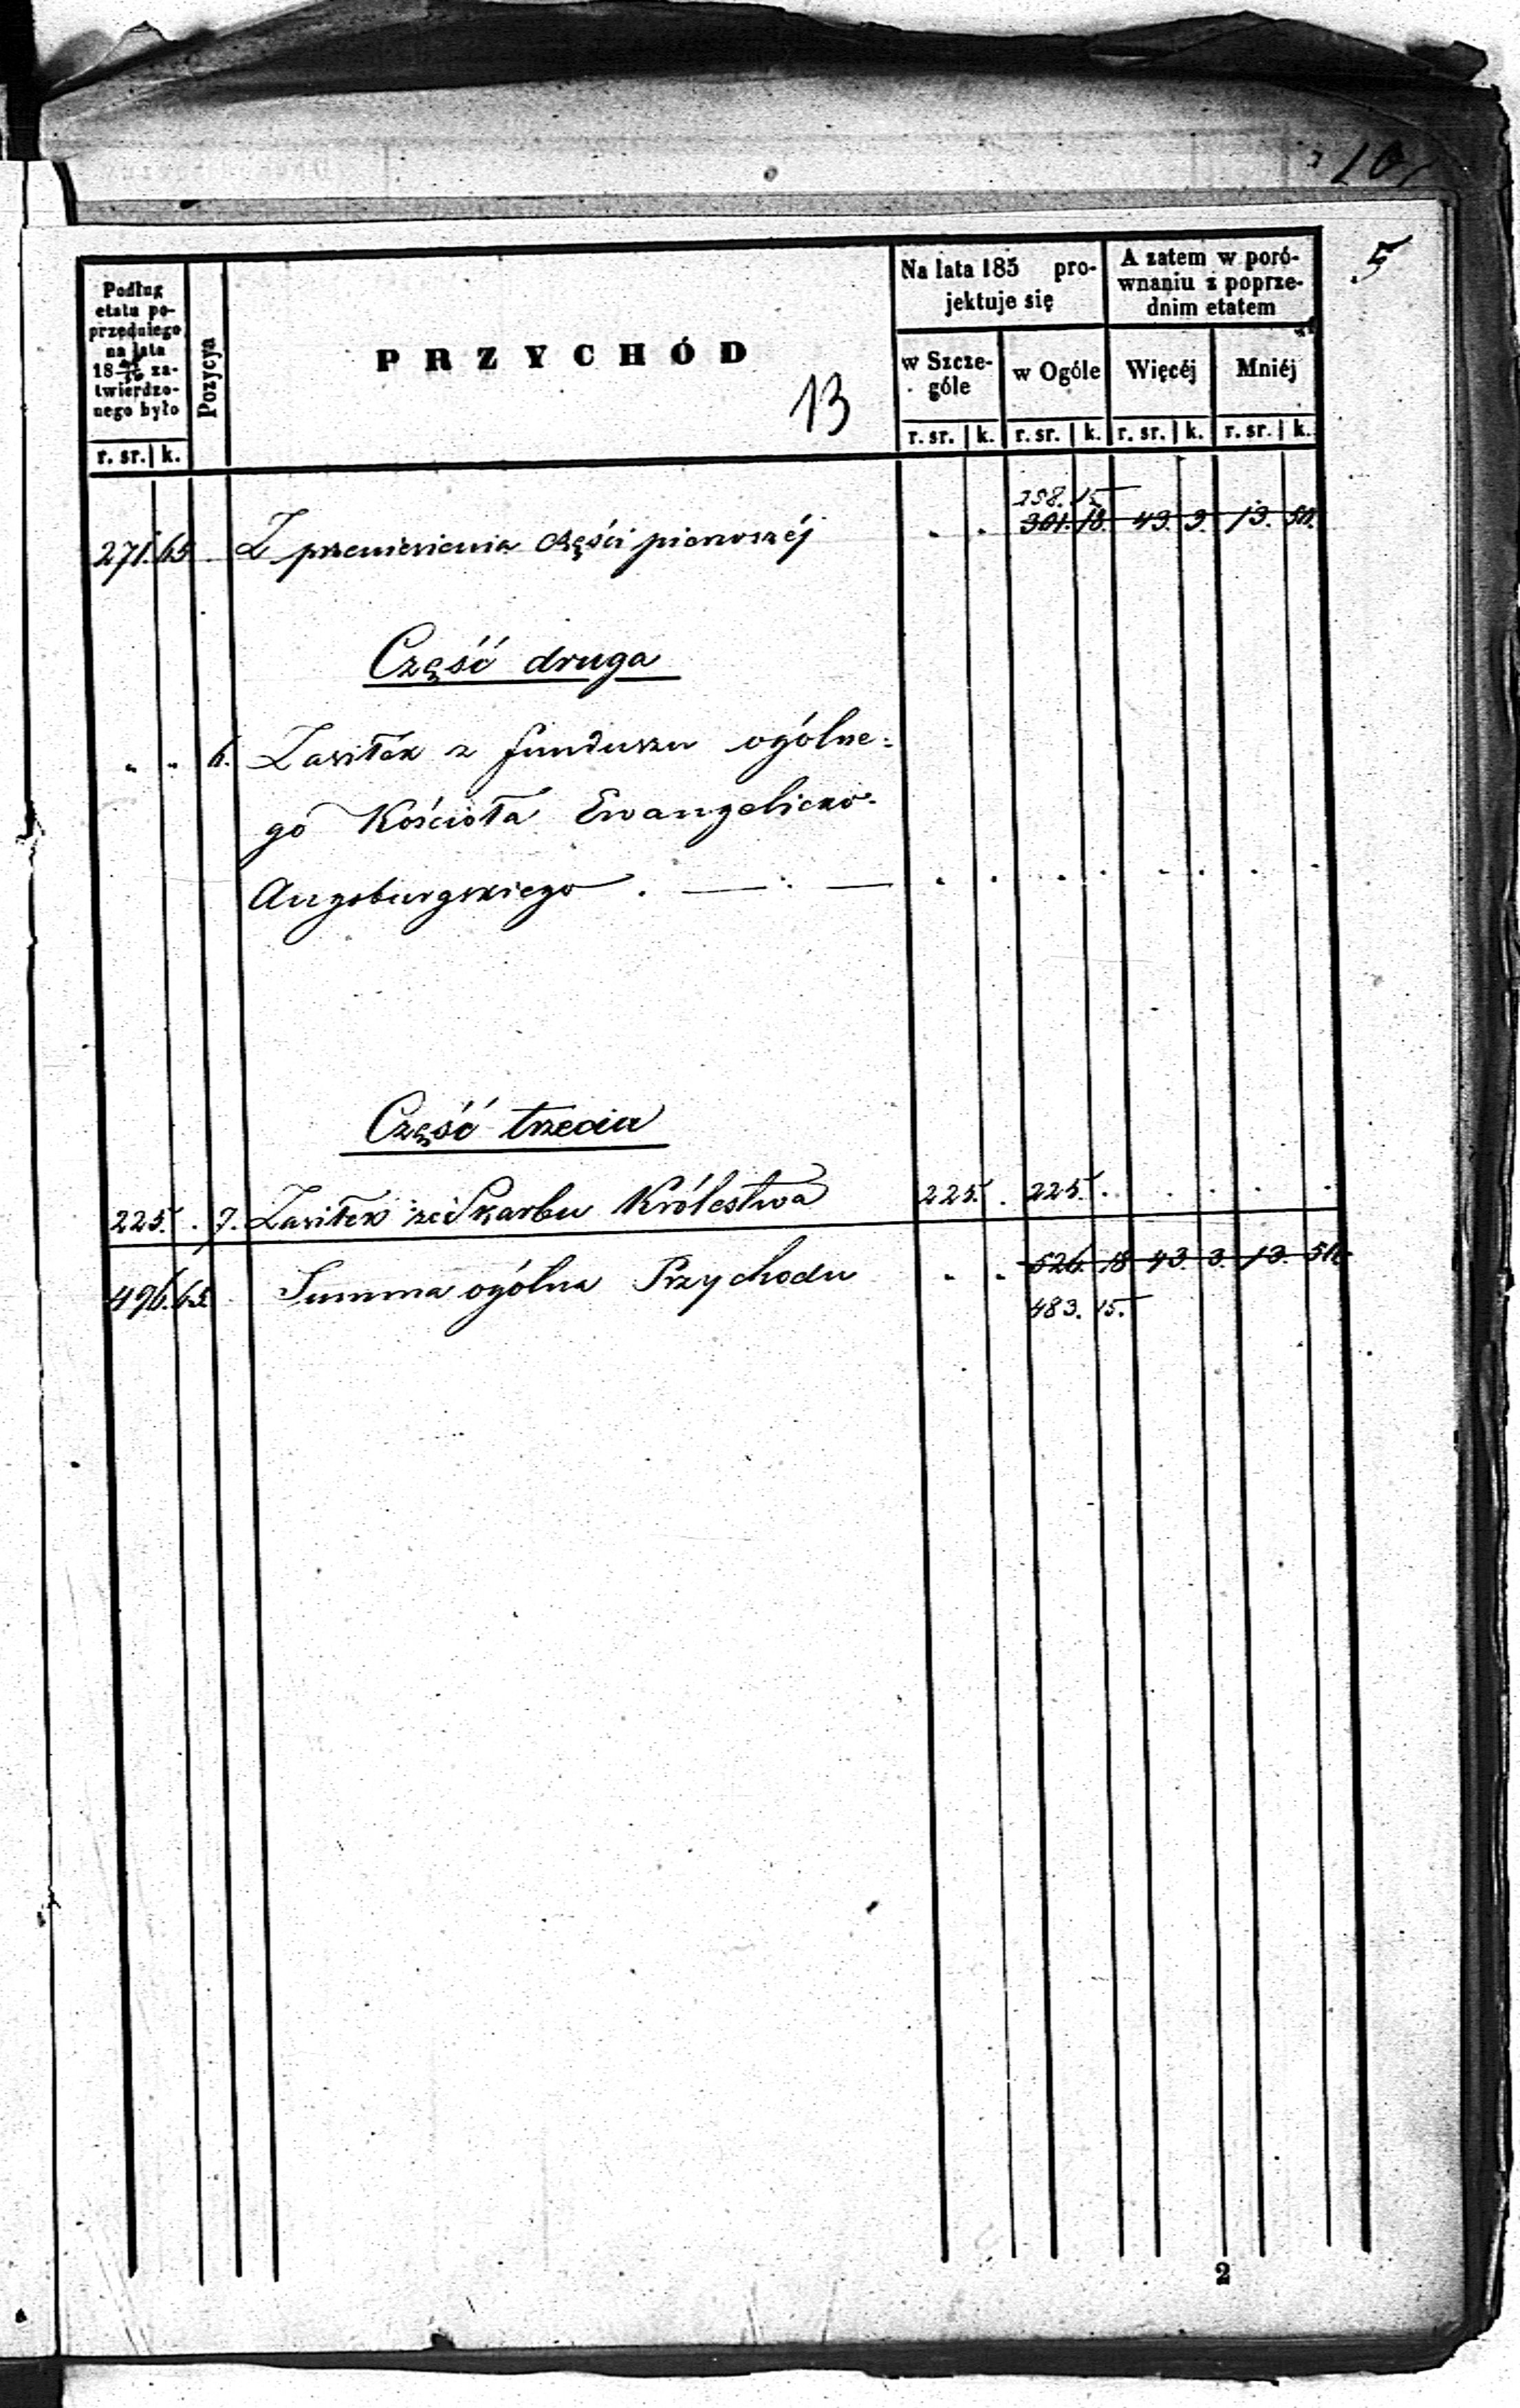 10
5
Podług
etatu po-
przedniego
na lata
18 za-
twierdzo-
nego było
r. sr. k.
Pozycya
PRZYCHÓD
13
Na lata 185 pro-
jektuje się
w Szcze-
góle
r. sr. k.
w Ogóle
r. sr. k.
A zatem w poró-
wnaniu z poprze-
dnim etatem
Więcéj
r. sr. k.
Mniéj
r. sr. k.
258. 15
271. 65 Z przeniesienia części pierwszéj . . 301. 18. 43. 3. 13. 50.
Część druga
6. Zasiłek z funduszu ogólne-
go Kościoła Ewangelicko-
Augsburgskiego . — . —
Część trzecia
225. . 7. Zasiłek ze Skarbu Królestwa 225. . 225. .
496. 65. Summa ogólna Przychodu . . 526. 18 43. 3. 13. 50.
483. 15.
2